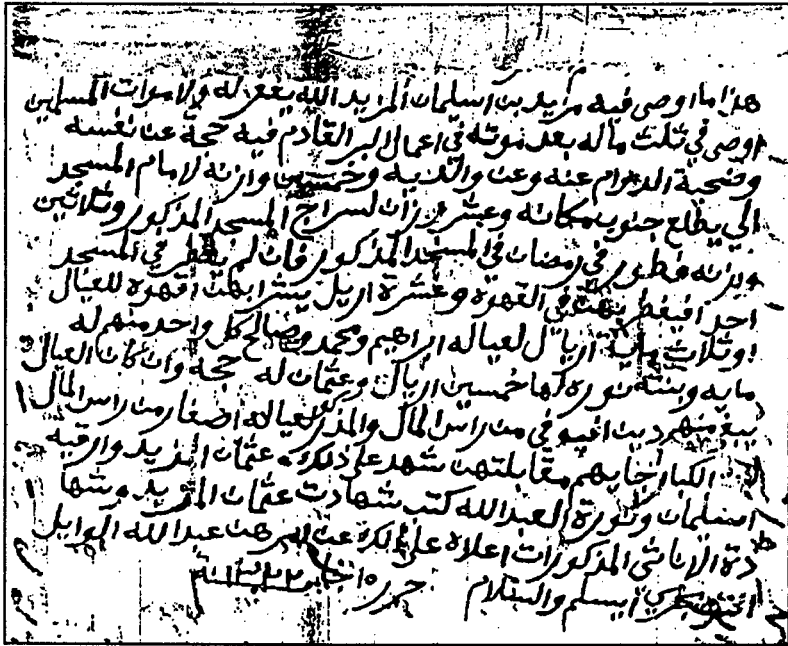 هذا ما اوصى فيه مزيد بن اسليمان المزيد الله يغفر له ولاموات المسلمين
اوصى في ثلث ماله بعد موته في اعمال البر القادم فيه حجة عن نفسه
وضحية الدوام عنه وعن والديه وخمسين وازنه لامام المسجد
الي يطلع جنوب مكانه وعشر وزان لسراج المسجد المذكور وثلاثين
وزنه فطور في رمضان في المسجد المذكور فان لم يفطر في المسجد
احد افيفطر بهن في القهوة وعشرة اريل يشرا بهن اقهوه للعيال
اوثلاث ماية اريال لعياله ابراهيم ومحمد وصالح كل واحد منهم له
مايه وبنته نوره لها خمسين اريال وعثمان له حجه وان كان العيال
يبغ منهم دين افيوفي من راس المال والمذكر لعياله اصغار من راس المال
الكبار مقابلتهن شهد على ذلك عثمان المزيد وارقيه
اسليمان ونورة العبدالله كتب شهادت عثمان المزيد وشها
دة الاناثي المذكورات اعلاه على ذلك عن عبدالله الوايل
ايسلم والسلام حرر ٥ سنة